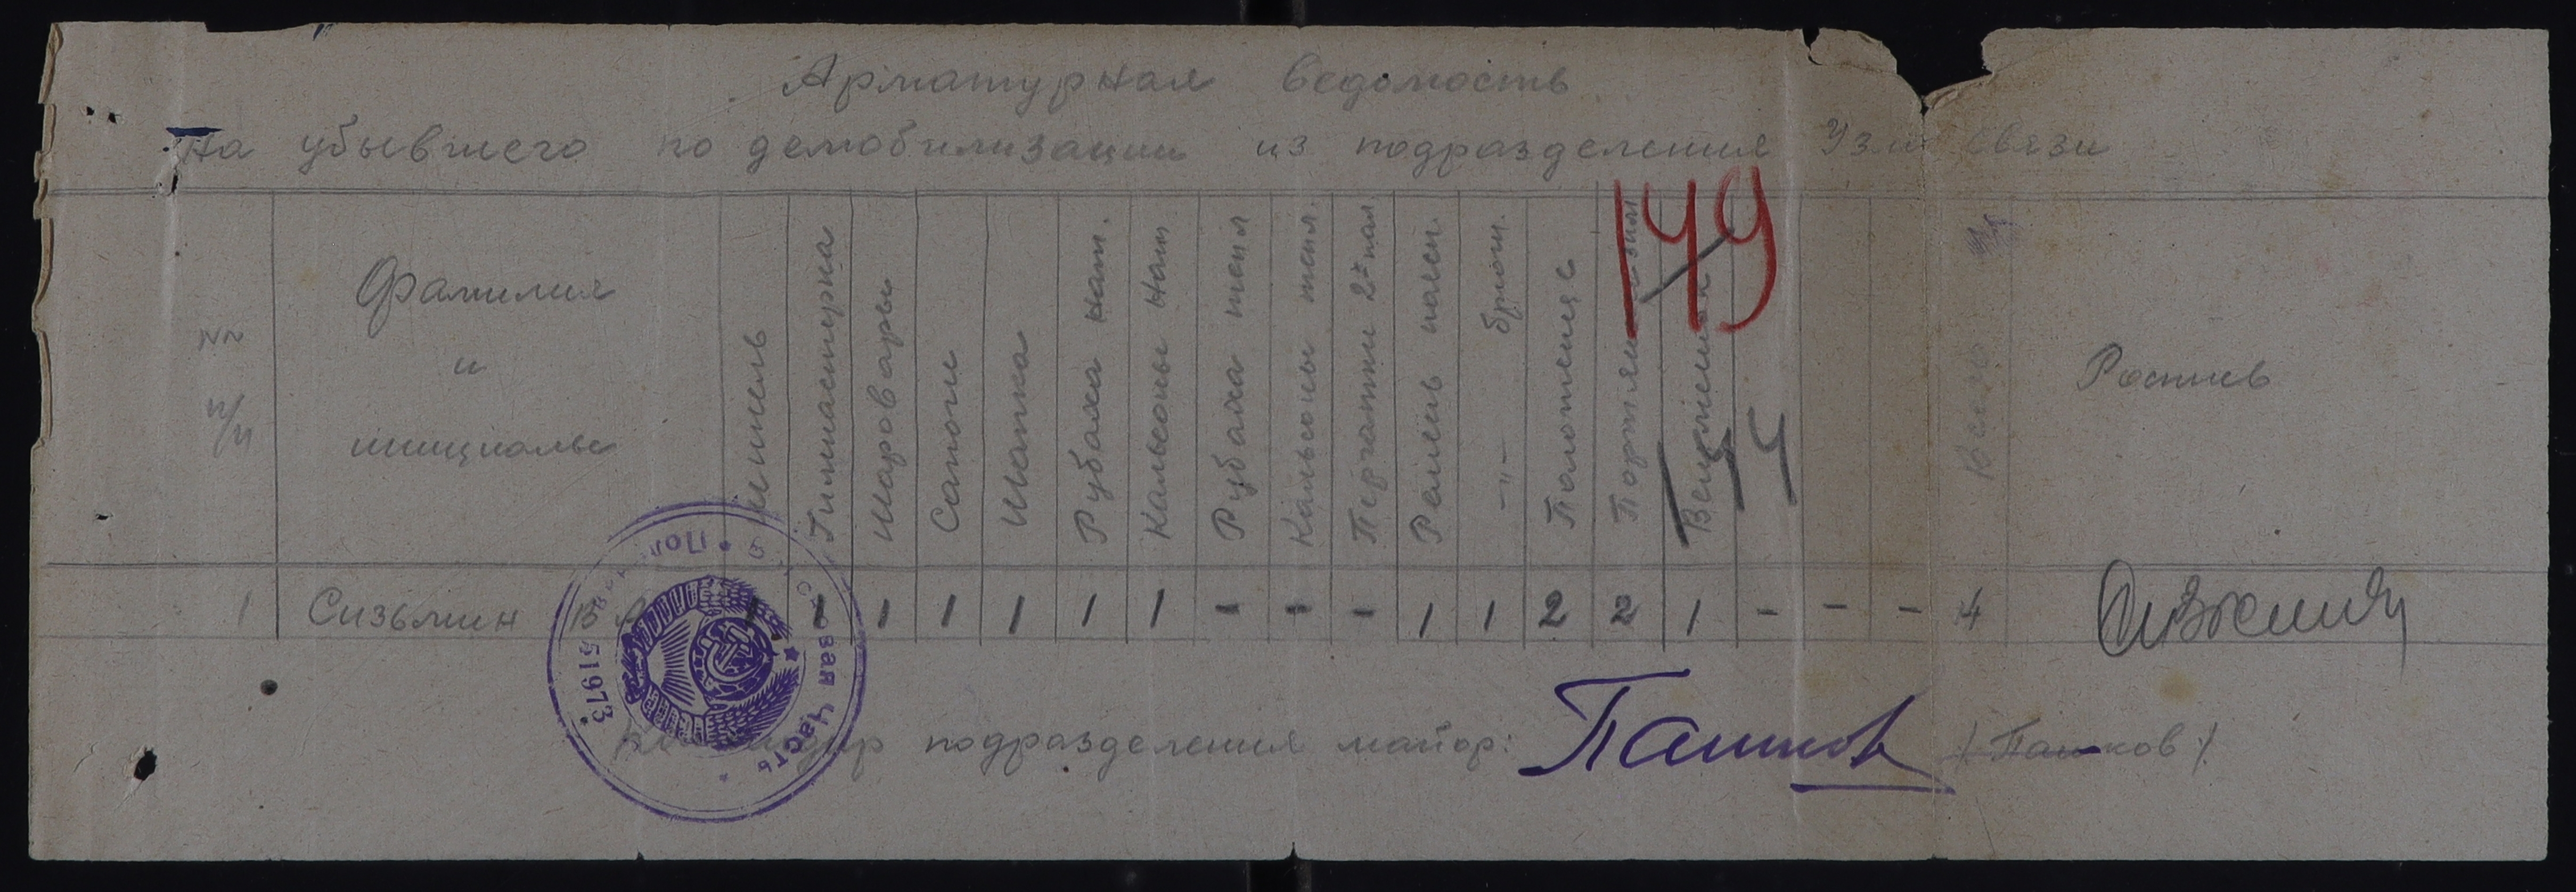 Арматурная ведомость
На убывшего по демобилизации из подразделения Узла связи
149
№№ п/п
Фамилия и инициалы
Шинель
Гимнастерка
Шаровары
Сапоги
Шапка
Рубаха нат.
Кальсоны нат
Рубаха тепл
Кальсоны тепл.
Перчатки 2х пал.
Ремень поясн.
-"- брючн.
Полотенце
Портянки зимн
Вещмешок
Всего
Роспись
144
1 Сизьмин В А 1 1 1 1 1 1 1 - - - 1 1 2 2 1 - - - 4
Полевая Почта 51973
Командир подразделения майор: Пашков /Пашков/